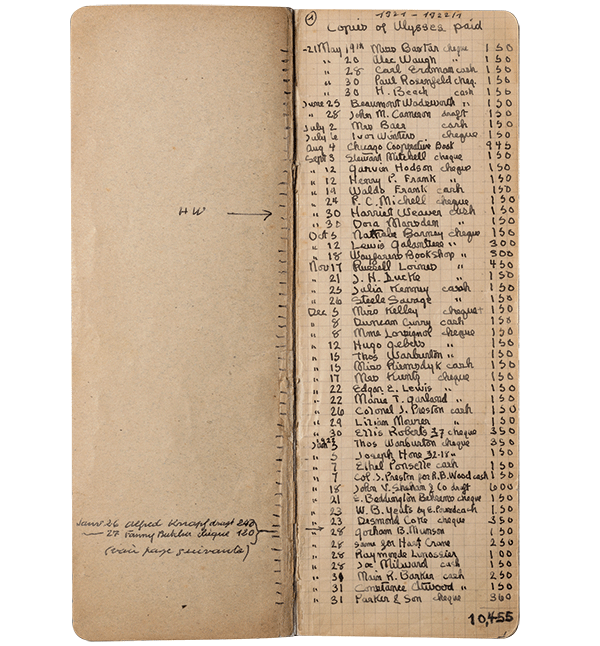 HW
Janv. 26 Alfred Knopf draft 240
27 Fanny Butcher chèque 150
(voir page suivante)
1
1921 - 1922
Copies of Ulysses paid
21 May 19th Miss Baxter cheque 150
" 20 Alec Waugh " 150
" 28 Carl Erdman cash 150
" 30 Paul Rosenfeld cheq. 150
" 30 H. Beach cash 150
June 25 Beaumont Wadsworth " 150
" 28 John M. Cameron draft 150
July 2 Mrs Baer cash 150
July 6 Ivor Winters cheque 150
Aug 4 Chicago Cooperative Book 945
Sept 3 Steward Mitchell cheque 150
" 12 Garvin Hodson cheque 150
" 12 Henry P. Frank " 150
" 19 Waldo Frank cash 150
" 24 F. C. Michell cheque 150
" 30 Harriet Weaver cash 150
" 30 Dora Marsden " 150
Oct 5 Nathalie Barney cheque 150
" 12 Lewis Galantiere " 300
" 18 Wayfarers Bookshop " 300
Nov 17 Russell Loines " 450
" 21 J. H. 150
" 25 Julia Kenney cash 150
" 26 Steele Savage " 150
Dec 5 Miss Kelley cheque 150
" 8 Duncan Curry cash 150
" 8 Mme cheque 150
" 12 Hugo " 150
" 15 Thos Warburton " 150
" 15 Miss cash 150
" 17 Mrs Kuntz cheque 150
" 22 Edgar E. Lewis " 150
" 22 Marie T. Garland " 150
" 26 Colonel J. Preston cash 150
" 29 Lilian " 150
" 30 Ellis Roberts 37 cheque 350
Jan 3 Thos Warburton cheque 350
" 5 Joseph Hone 32-18 " 150
" 7 Ethel Ponselle cash 150
" 7 Col. J. Preston for R.B. Wood cash 150
" 18 John V. Sheham & Co draft 600
" 21 E. Beddington Behrens cheque 150
" 23 W. B. Yeats by E. Pound cash 150
" 23 Desmond Coke cheque 350
" 28 Gorham B. Munson " 150
" 28 Same for Hart Crane 250
" 28 Raymonde Linossier " 100
" 28 Joe Milward cash 150
" 31 R. Barker cash 250
" 31 Constance Atwood " 150
" 31 Parker & Son cheque 360
10,455